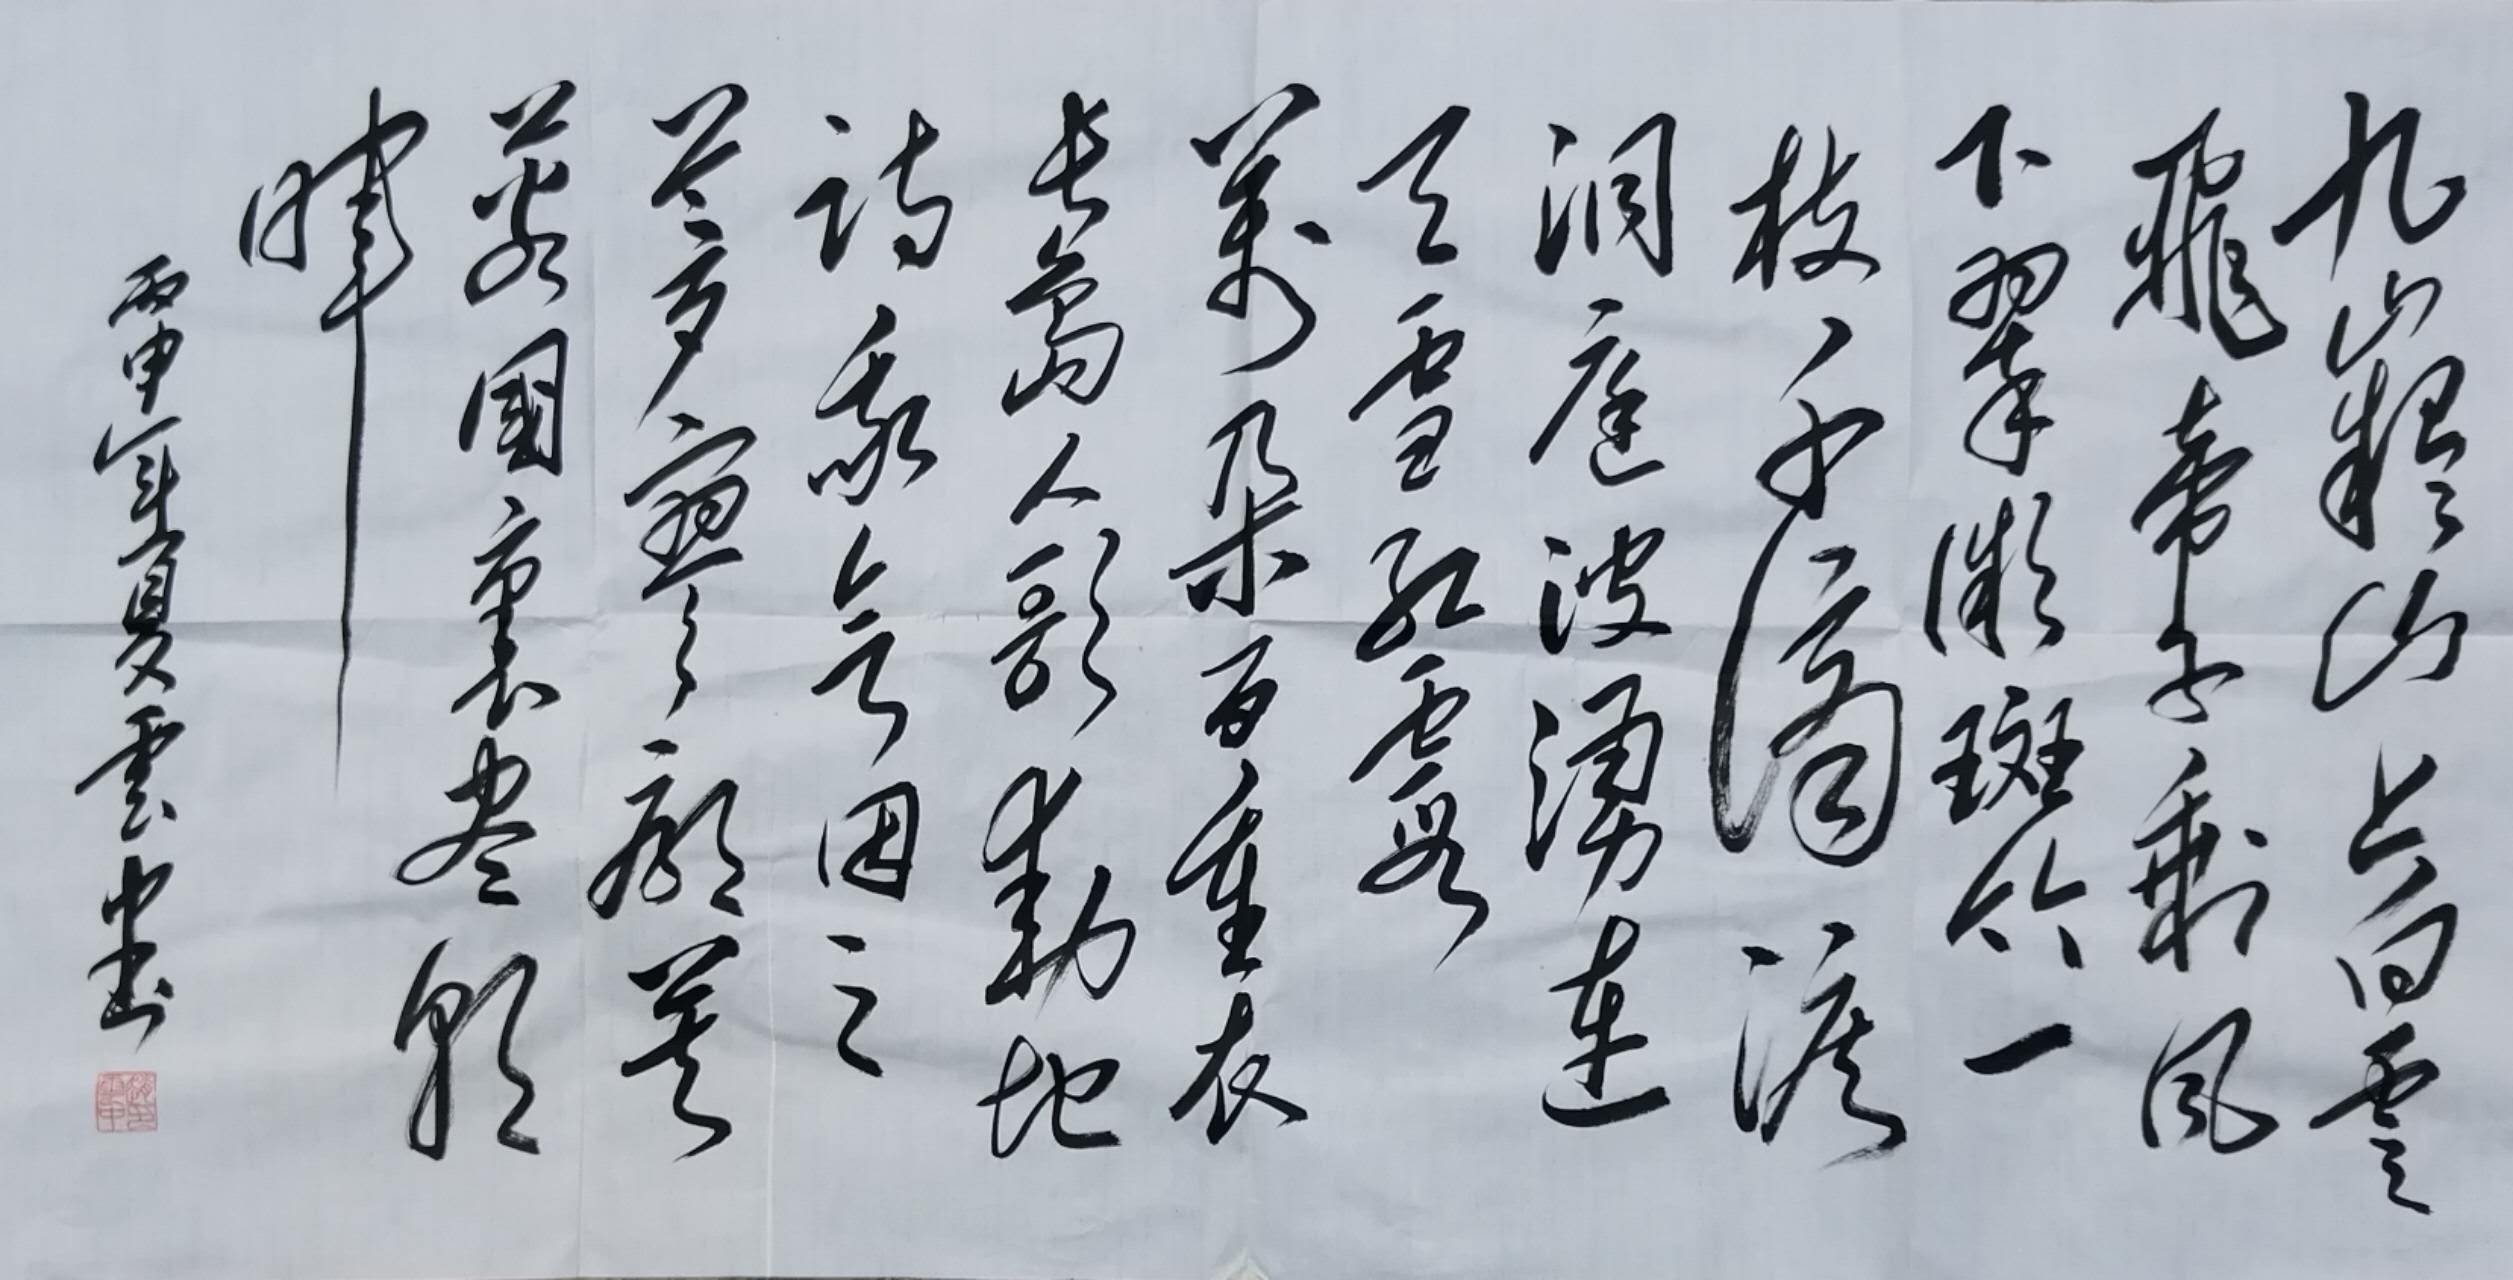 九嶷山上白雲
飛帝子乘风
下翠微斑竹一
枝千滴淚
洞庭波湧連
天雪紅霞
萬朵百重衣
長島人歌動地
詩我欲因之
夢寥廓芙
蓉國裏尽朝
暉
丙申年夏雲中书